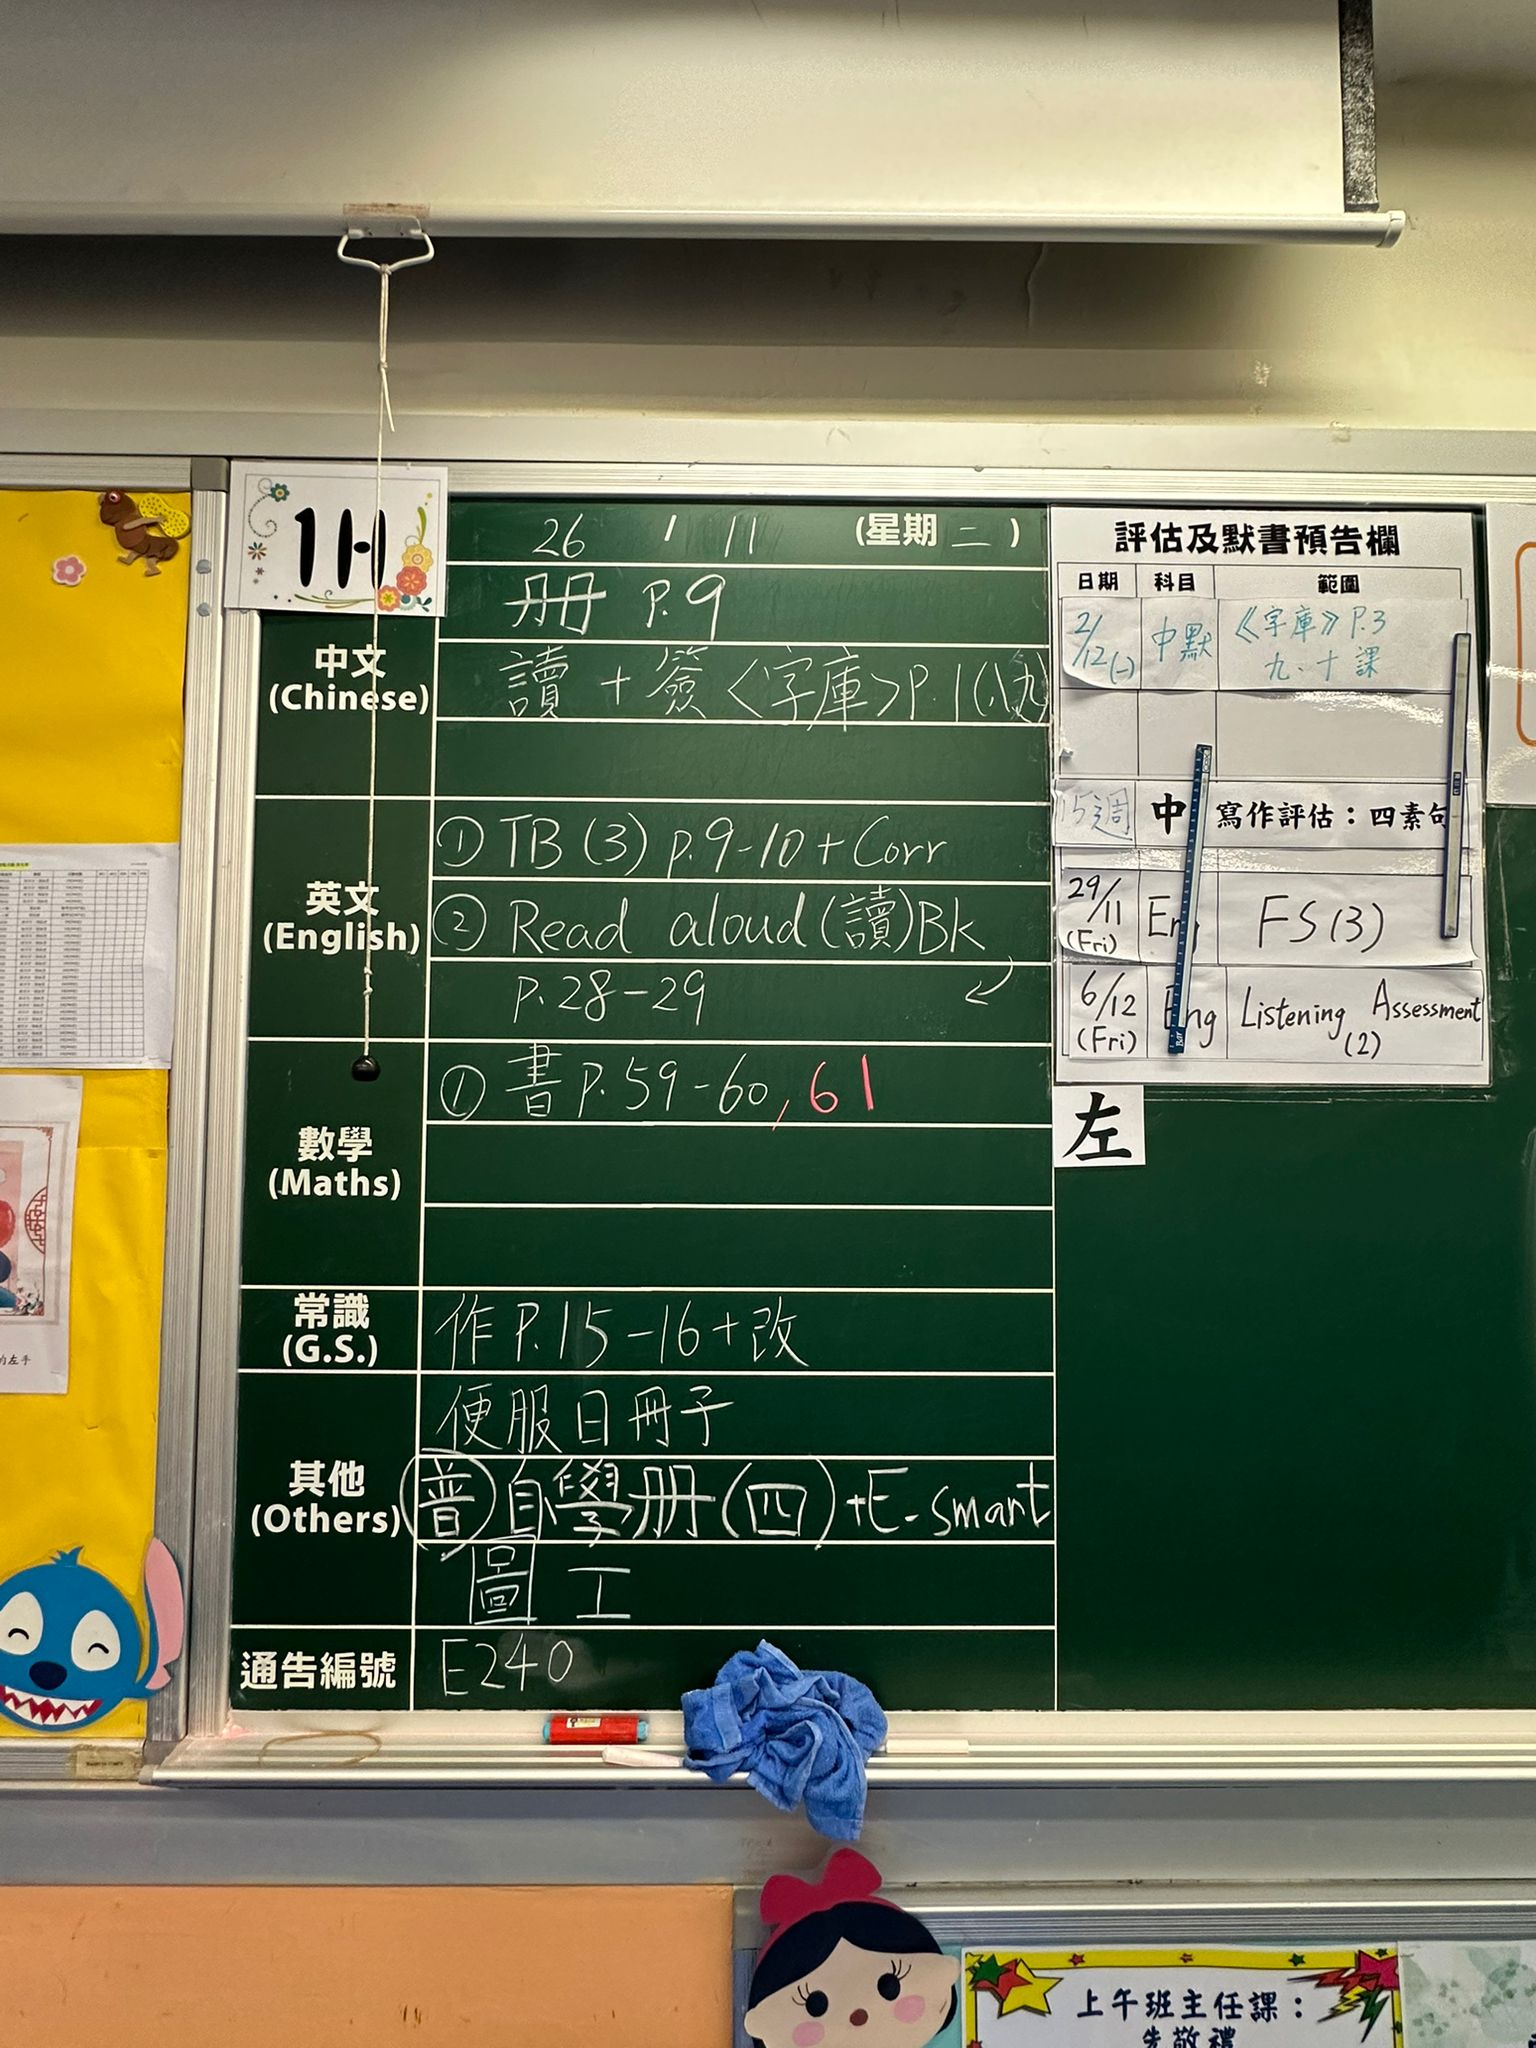 1H
26 / 11 (星期 二 )
中文
(Chinese)
册 P.9
讀 + 簽〈字庫〉P.1(八,九)
英文
(English)
① TB (3) p.9-10 + Corr
② Read aloud (讀) Bk
p.28-29
數學
(Maths)
① 書 P.59-60, 61
常識
(G.S.)
作 P.15-16 + 改
其他
(Others)
便服日冊子
普 自學册(四) + E-smart
圖工
通告編號
E240
評估及默書預告欄
日期 科目 範圍
2/12(一) 中默 《字庫》P.3
九、十課
15週 中 寫作評估：四素句
29/11 (Fri) Eng FS (3)
6/12 (Fri) Eng Listening Assessment (2)
左
的左手
上午班主任課：
先敬禮